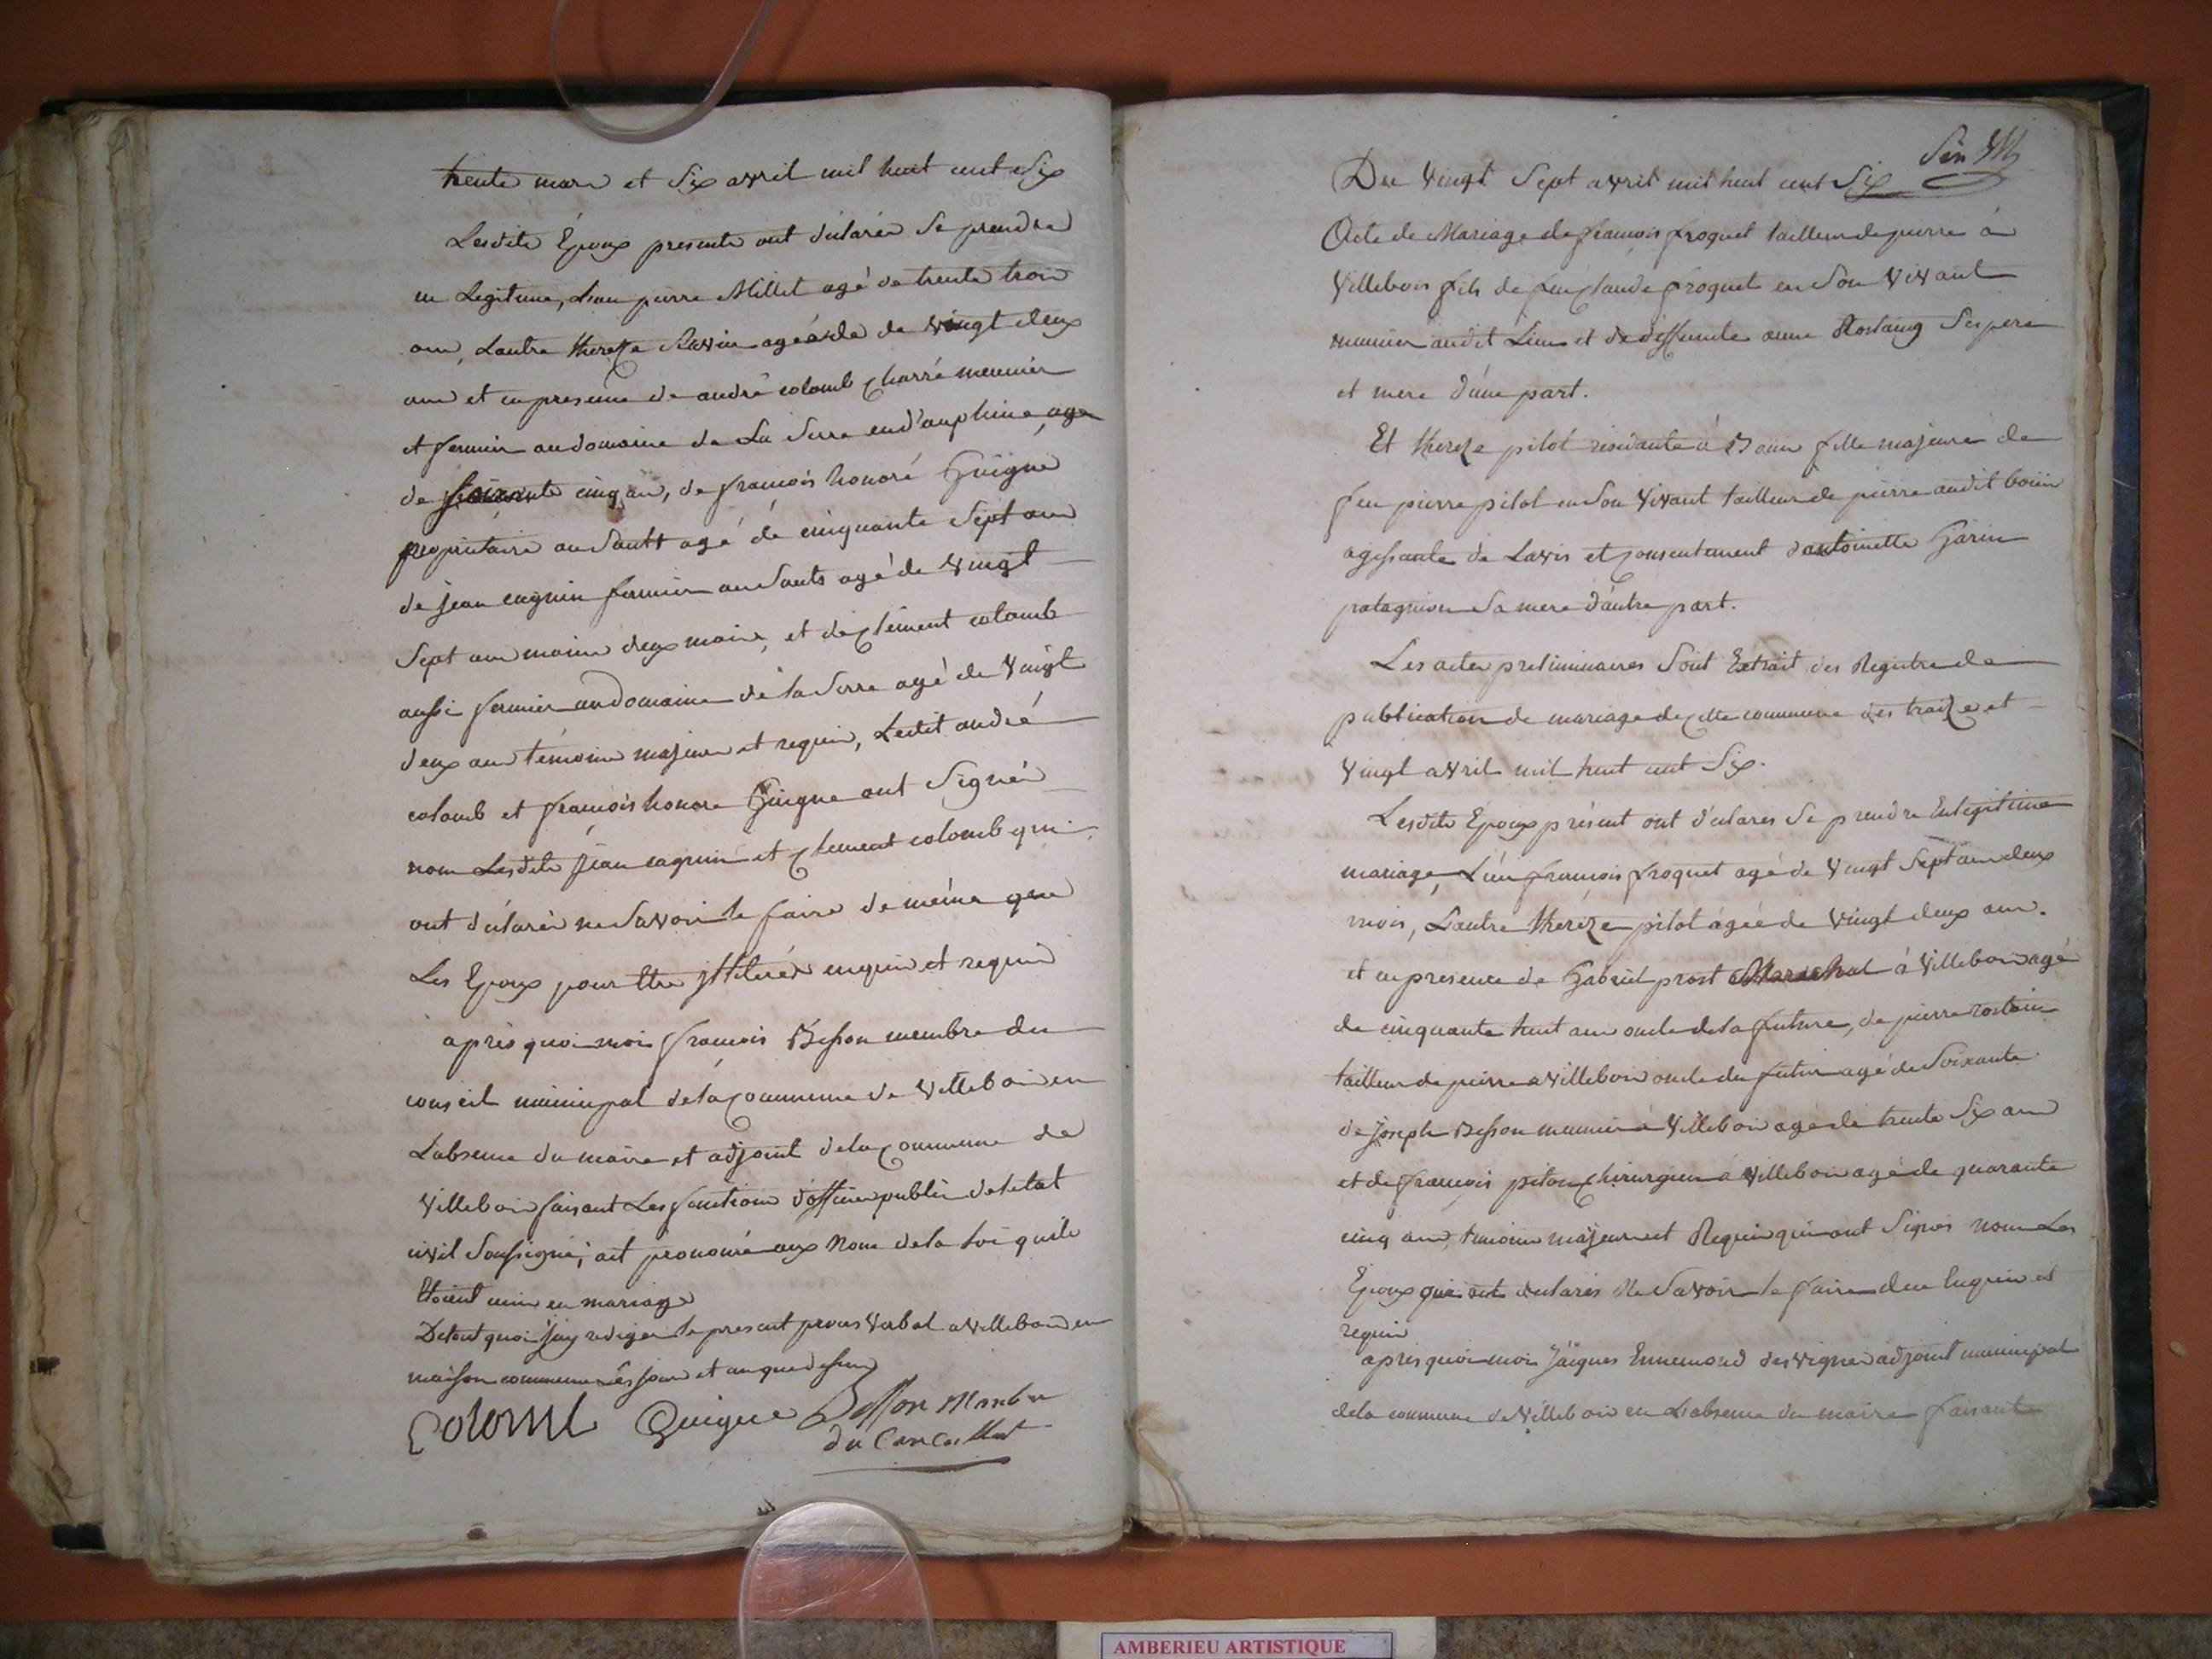 trente mars et Six avril mil huit cent Six
Lesdits Epoux presents ont déclarés Se prendre
en Legitime, L'un pierre Millet agé de trente trois
ans, Lautre thereze Ravier agée de vingt deux
ans et en presence de andré colomb charré meunier
et fermier au domaine de La Serre en d'auphiné, agé
de cinq ans, de françois honoré Guigue
propriétaire au Sault agé de cinquante Sept ans
de jean cagnin fermier au Sault agé de vingt
Sept ans moins deux mois, et de clément colomb
aussi fermier au domaine de la Serre agé de vingt
deux ans témoins majeurs et requis, Ledit andré
colomb et françois honoré Guigue ont Signés
non Lesdits jean cagnin et clement colomb qui
ont déclarés ne Savoir le faire de même que
Les Epoux pour être illiterés enquis et requis
après quoi moi françois Besson membre du
conseil municipal de la commune de villebois en
L'absence du maire et adjoint de la commune de
villebois faisant Les fonctions d'officier public de l'etat
civil Soussigné, ait prononcé aux Nom de la Loi qu'ils
étoient unis en mariage
De tout quoi j'ay redigé le present procès verbal a villebois en
maison commune Les jour et an que dessus
Colomb Guigue Besson Membre
du
Du vingt Sept avril mil huit cent Six
Acte de Mariage de françois froquet tailleur de pierre à
Villebois fils de feu claude froquet en Son vivant
meunier audit Lieu et de deffunte anne Rostaing Ses pere
et mere d'une part.
Et thereze pilot residante à Boüis fille majeure de
feu pierre pilot en Son vivant tailleur de pierre audit boüis
agissante de Lavis et consentement d'antoinette Garin
patagnion Sa mere d'autre part.
Les actes preliminaires Sont Extrait des Registre de
publication de mariage de cette commune des traize et
vingt avril mil huit cent Six.
Lesdits Epoux présent ont déclarés Se prendre En legitime
mariage, L'un françois froquet agé de vingt Sept ans deux
mois, L'autre thereze pilot agée de vingt deux ans.
et en presence de Gabriel prost Marechal à villebois agé
de cinquante huit ans oncle de la future, de pierre rostain
tailleur de pierre a villebois oncle du futur agé de Soixante
de Joseph Besson meunier à villebois agé de trente Six ans
et de françois piton chirurgien à villebois agé de quarante
cinq ans, temoins majeurs et Requis qui ont Signés non Les
Epoux qui ont declarés Ne Savoir le faire de ce Enquis et
requis
après quoi moi Jaques Ennemond desvignes adjoint municipal
de la commune de villebois en L'absence du maire faisant
AMBERIEU ARTISTIQUE